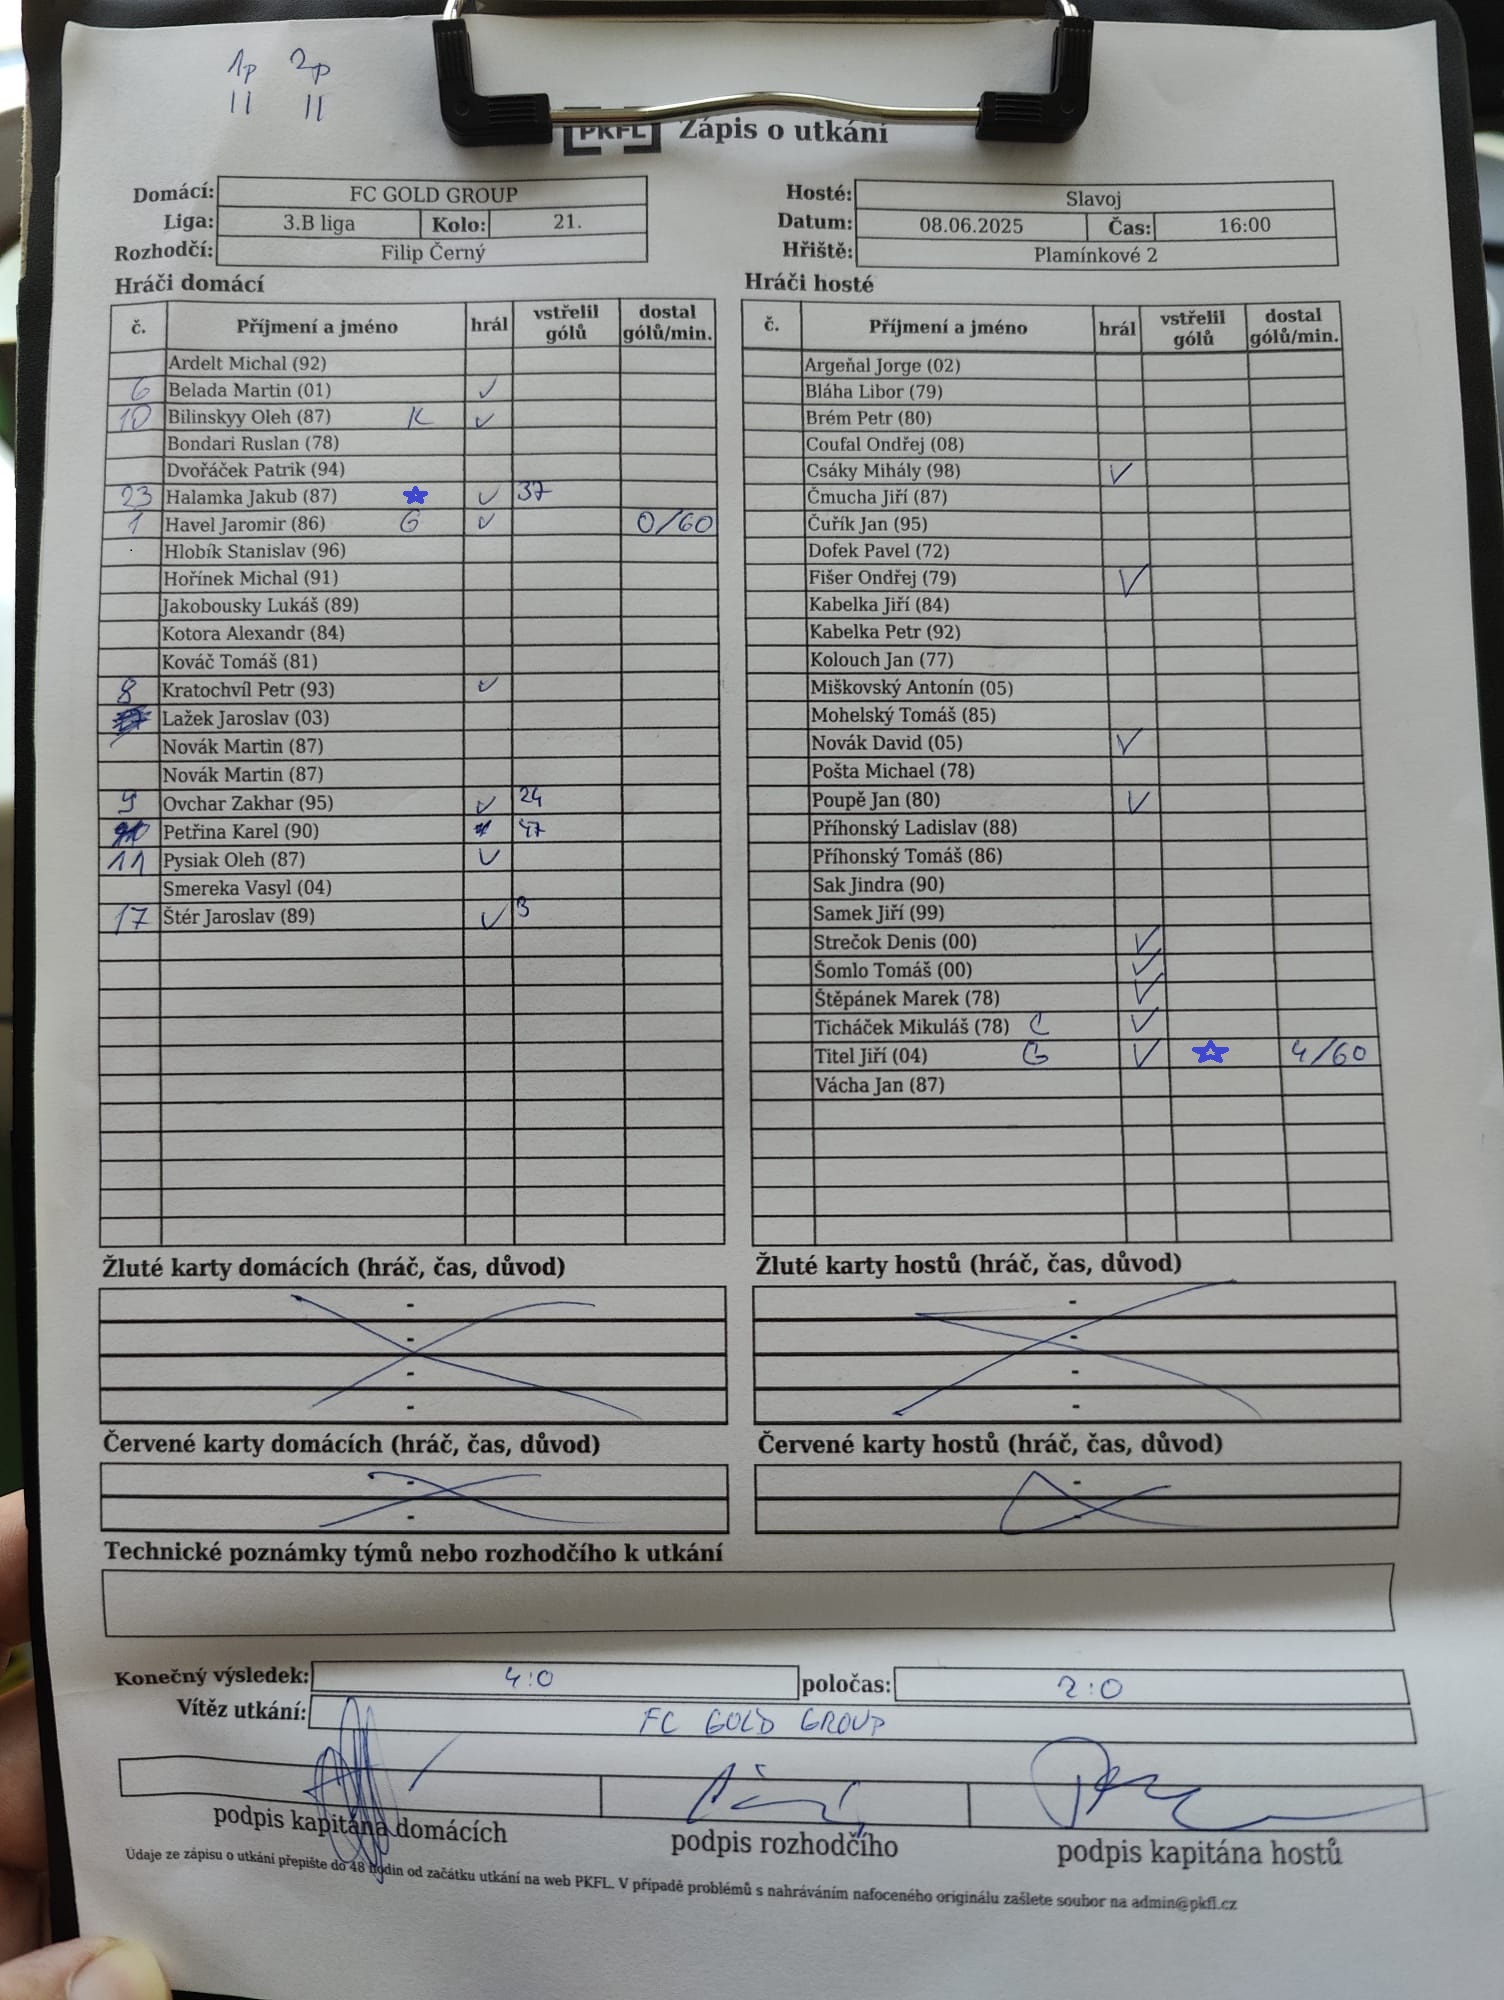 1p 2p
|| ||
PKFL Zápis o utkání
Domácí: FC GOLD GROUP
Liga: 3.B liga Kolo: 21.
Rozhodčí: Filip Černý
Hosté: Slavoj
Datum: 08.06.2025 Čas: 16:00
Hřiště: Plamínkové 2
Hráči domácí
č. Příjmení a jméno hrál vstřelil gólů dostal gólů/min.
Ardelt Michal (92)
6 Belada Martin (01) ✓
10 Bilinskyy Oleh (87) K ✓
Bondari Ruslan (78)
Dvořáček Patrik (94)
23 Halamka Jakub (87) ★ ✓ 37
1 Havel Jaromir (86) G ✓ 0/60
Hlobík Stanislav (96)
Hořínek Michal (91)
Jakobousky Lukáš (89)
Kotora Alexandr (84)
Kováč Tomáš (81)
8 Kratochvíl Petr (93) ✓
Lažek Jaroslav (03)
Novák Martin (87)
Novák Martin (87)
9 Ovchar Zakhar (95) ✓ 24
Petřina Karel (90) 47
11 Pysiak Oleh (87) ✓
Smereka Vasyl (04)
17 Štér Jaroslav (89) ✓ 3
Hráči hosté
č. Příjmení a jméno hrál vstřelil gólů dostal gólů/min.
Argeňal Jorge (02)
Bláha Libor (79)
Brém Petr (80)
Coufal Ondřej (08)
Csáky Mihály (98) ✓
Čmucha Jiří (87)
Čuřík Jan (95)
Dofek Pavel (72)
Fišer Ondřej (79) ✓
Kabelka Jiří (84)
Kabelka Petr (92)
Kolouch Jan (77)
Miškovský Antonín (05)
Mohelský Tomáš (85)
Novák David (05) ✓
Pošta Michael (78)
Poupě Jan (80) ✓
Příhonský Ladislav (88)
Příhonský Tomáš (86)
Sak Jindra (90)
Samek Jiří (99)
Strečok Denis (00) ✓
Šomlo Tomáš (00) ✓
Štěpánek Marek (78) ✓
Ticháček Mikuláš (78) C ✓
Titel Jiří (04) G ✓ ★ 4/60
Vácha Jan (87)
Žluté karty domácích (hráč, čas, důvod)
-
-
-
-
Žluté karty hostů (hráč, čas, důvod)
-
-
-
-
Červené karty domácích (hráč, čas, důvod)
-
-
Červené karty hostů (hráč, čas, důvod)
-
-
Technické poznámky týmů nebo rozhodčího k utkání
Konečný výsledek: 4:0 poločas: 2:0
Vítěz utkání: FC GOLD GROUP
podpis kapitána domácích podpis rozhodčího podpis kapitána hostů
Údaje ze zápisu o utkání přepište do 48 hodin od začátku utkání na web PKFL. V případě problémů s nahráváním nafoceného originálu zašlete soubor na admin@pkfl.cz